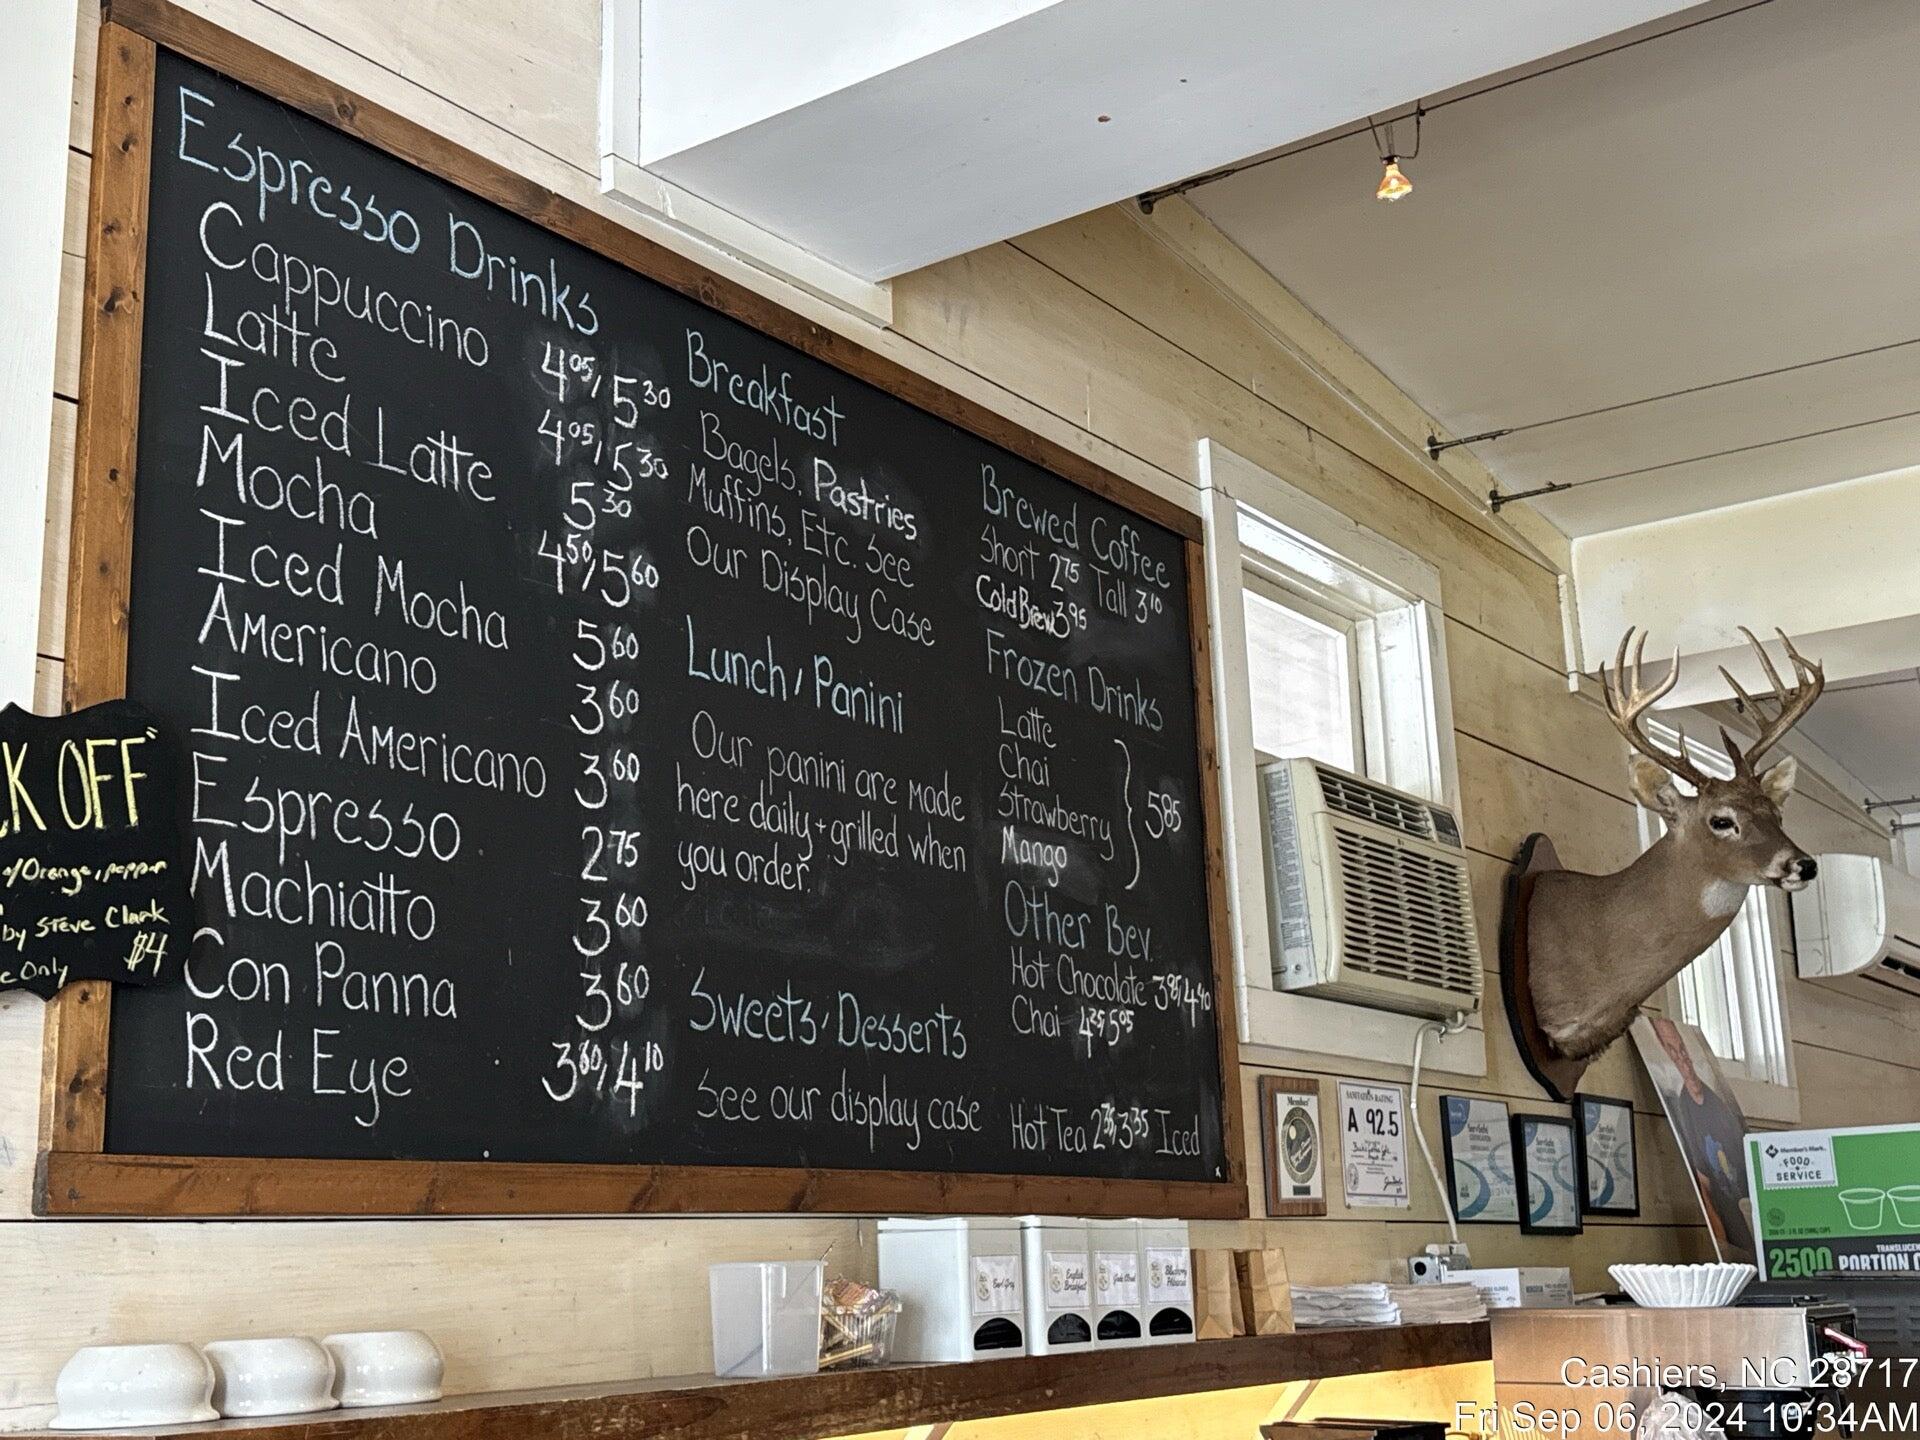 Espresso Drinks
Cappuccino 4.05/5.30
Latte 4.05/5.30
Iced Latte 5.30
Mocha 4.50/5.60
Iced Mocha 5.60
Americano 3.60
Iced Americano 3.60
Espresso 2.75
Machiatto 3.60
Con Panna 3.60
Red Eye 3.60/4.10
Breakfast
Bagels, Pastries
Muffins, Etc. See
Our Display Case
Lunch/Panini
Our panini are made
here daily + grilled when
you order.
Sweets/Desserts
See our display case
Brewed Coffee
Short 2.75 Tall 3.10
Cold Brew 3.95
Frozen Drinks
Latte
Chai
Strawberry
Mango
5.85
Other Bev.
Hot Chocolate 3.95/4.40
Chai 4.35/5.05
Hot Tea 2.35/3.35 Iced
K OFF"
w/Orange, pepper
by Steve Clark
Only $4
Member
SANITATION RATING
A 92.5
ServSafe
ServSafe
ServSafe
Earl Grey
English
Breakfast
Jade Cloud
Blueberry
Hibiscus
Member's Mark
FOOD
SERVICE
2500
TRANSLUCEN
PORTION C
Cashiers, NC 28717
Fri Sep 06, 2024 10:34AM